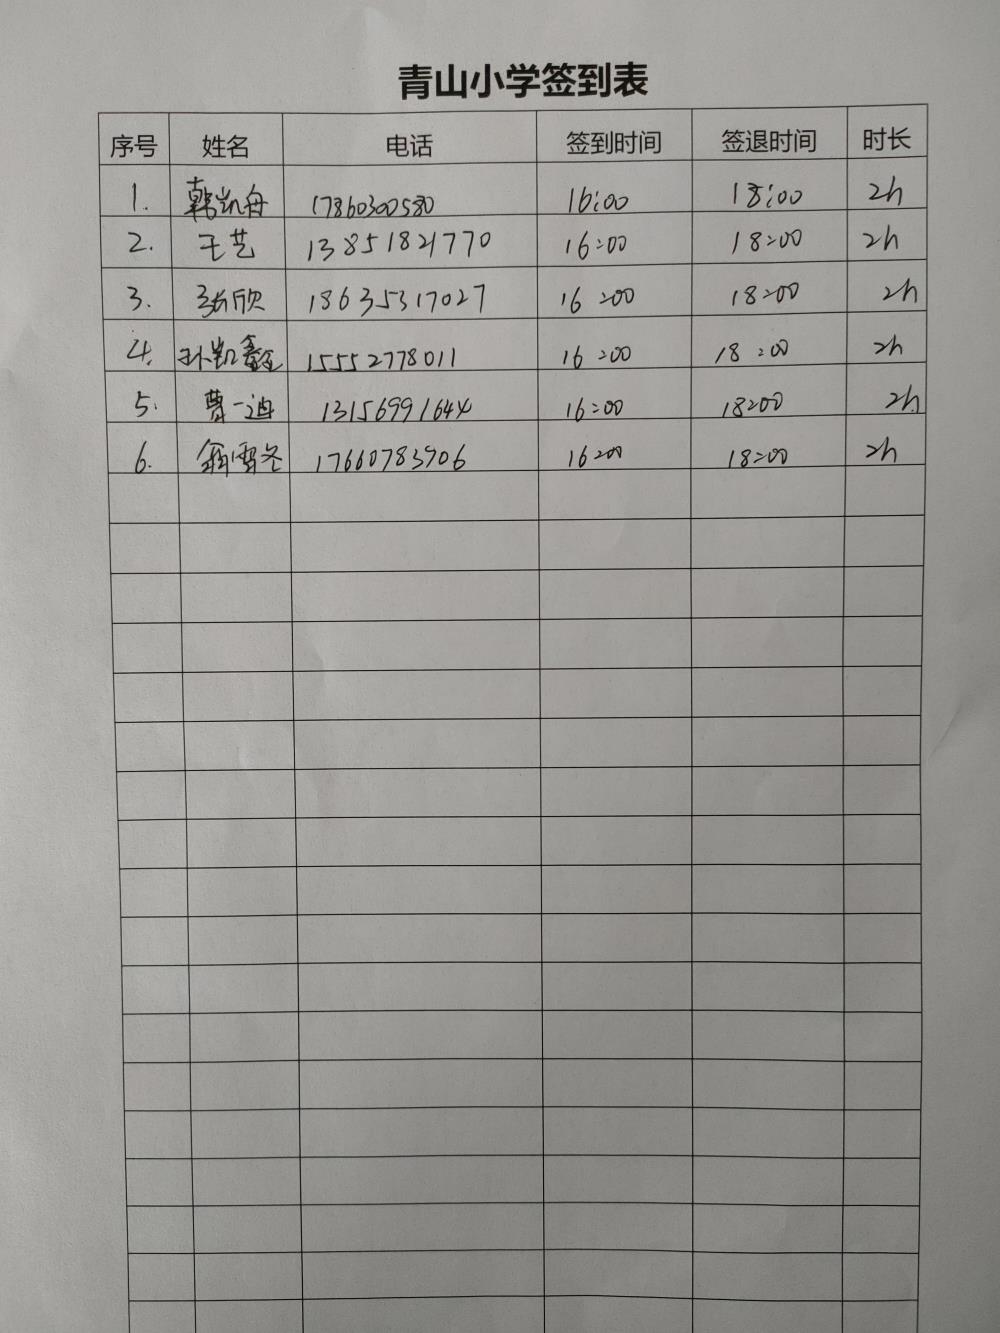 青山小学签到表
序号 姓名 电话 签到时间 签退时间 时长
1. 韩凯舟 17860300580 16:00 18:00 2h
2. 王艺 13851821770 16:00 18:00 2h
3. 张欣 18635317027 16:00 18:00 2h
4. 孙凯鑫 15552778011 16:00 18:00 2h
5. 曹一迪 13156991644 16:00 18:00 2h
6. 雪冬 17660783906 16:00 18:00 2h